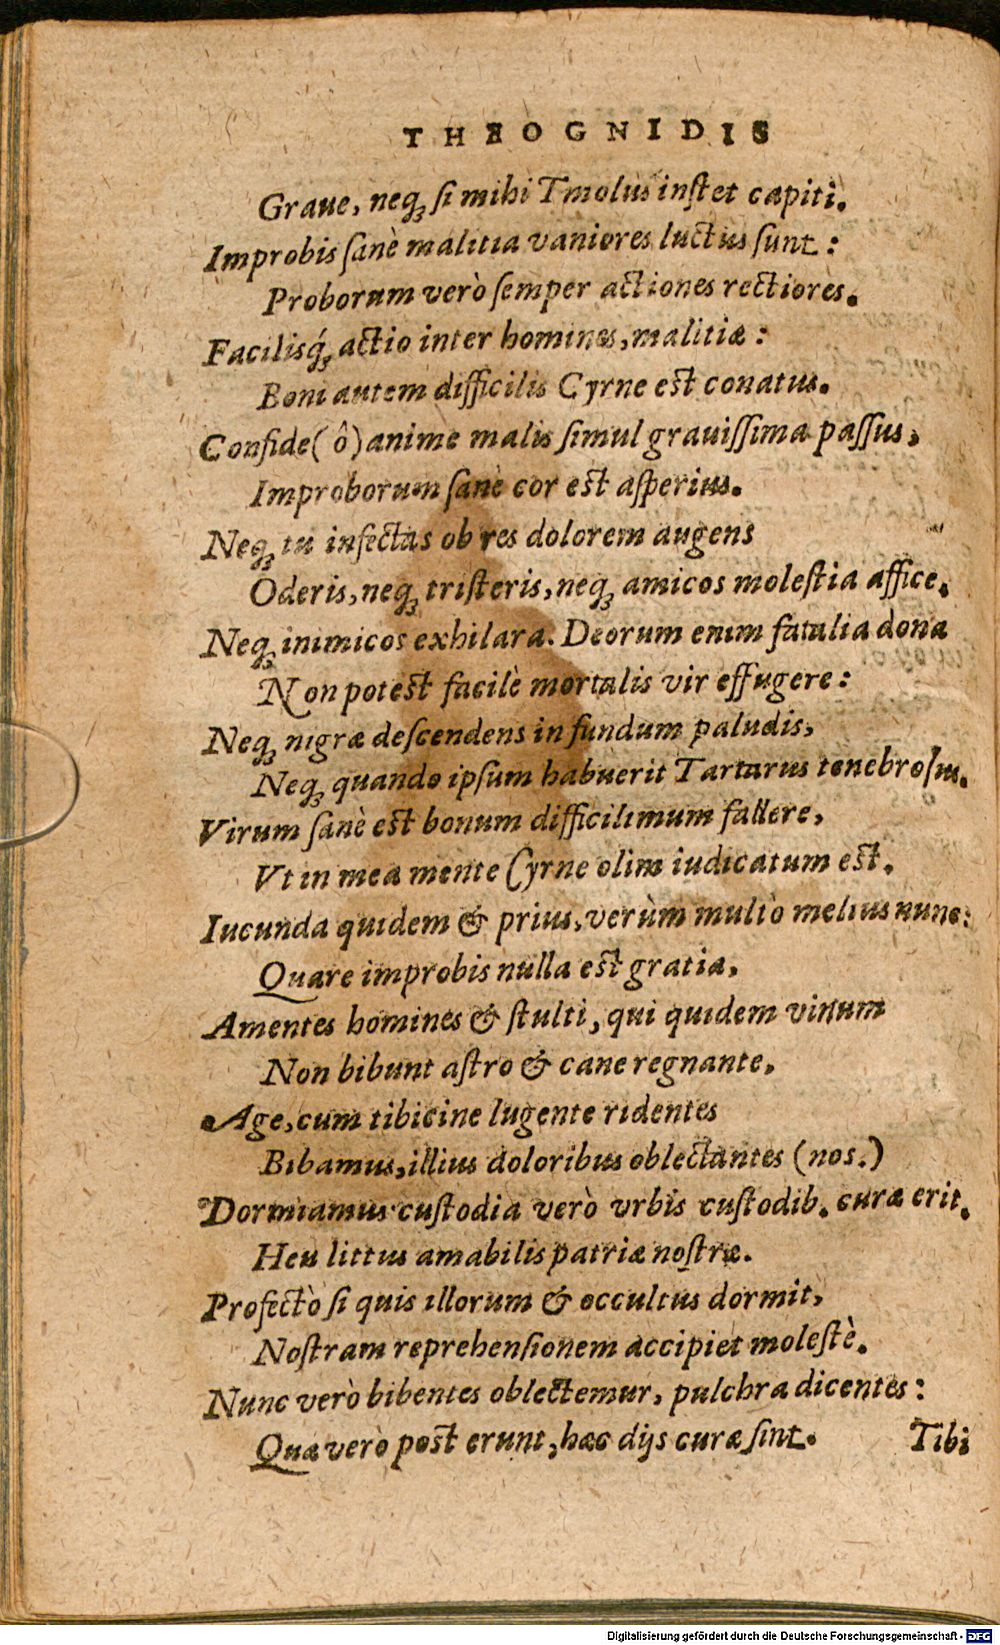 THEOGNIDIS
Graue, neq; si mihi Tmolus instet capiti.
Improbis sanè malitia vaniores luctus sunt:
Proborum verò semper actiones rectiores.
Facilisq́; actio inter homines, malitiæ:
Boni autem difficilis Cyrne est conatus.
Confide (ô) anime malis simul grauissima passus,
Improborum sanè cor est asperius.
Neq; tu infectas ob res dolorem augens
Oderis, neq; tristeris, neq; amicos molestia affice.
Neq; inimicos exhilara. Deorum enim fatalia dona
Non potest facilè mortalis vir effugere:
Neq; nigræ descendens in fundum paludis,
Neq; quando ipsum habuerit Tartarus tenebrosus.
Virum sanè est bonum difficilimum fallere,
Vt in mea mente Cyrne olim iudicatum est.
Iucunda quidem & prius, verùm multò melius nunc:
Quare improbis nulla est gratia.
Amentes homines & stulti, qui quidem vinum
Non bibunt astro & cane regnante.
Age, cum tibicine lugente ridentes
Bibamus, illius doloribus oblectantes (nos.)
Dormiamus custodia verò vrbis custodib. curæ erit.
Heu littus amabilis patriæ nostræ.
Profectò si quis illorum & occultus dormit,
Nostram reprehensionem accipiet molestè.
Nunc verò bibentes oblectemur, pulchra dicentes:
Quæ verò post erunt, hæc dijs curæ sint.
Tibi
Digitalisierung gefördert durch die Deutsche Forschungsgemeinschaft - DFG